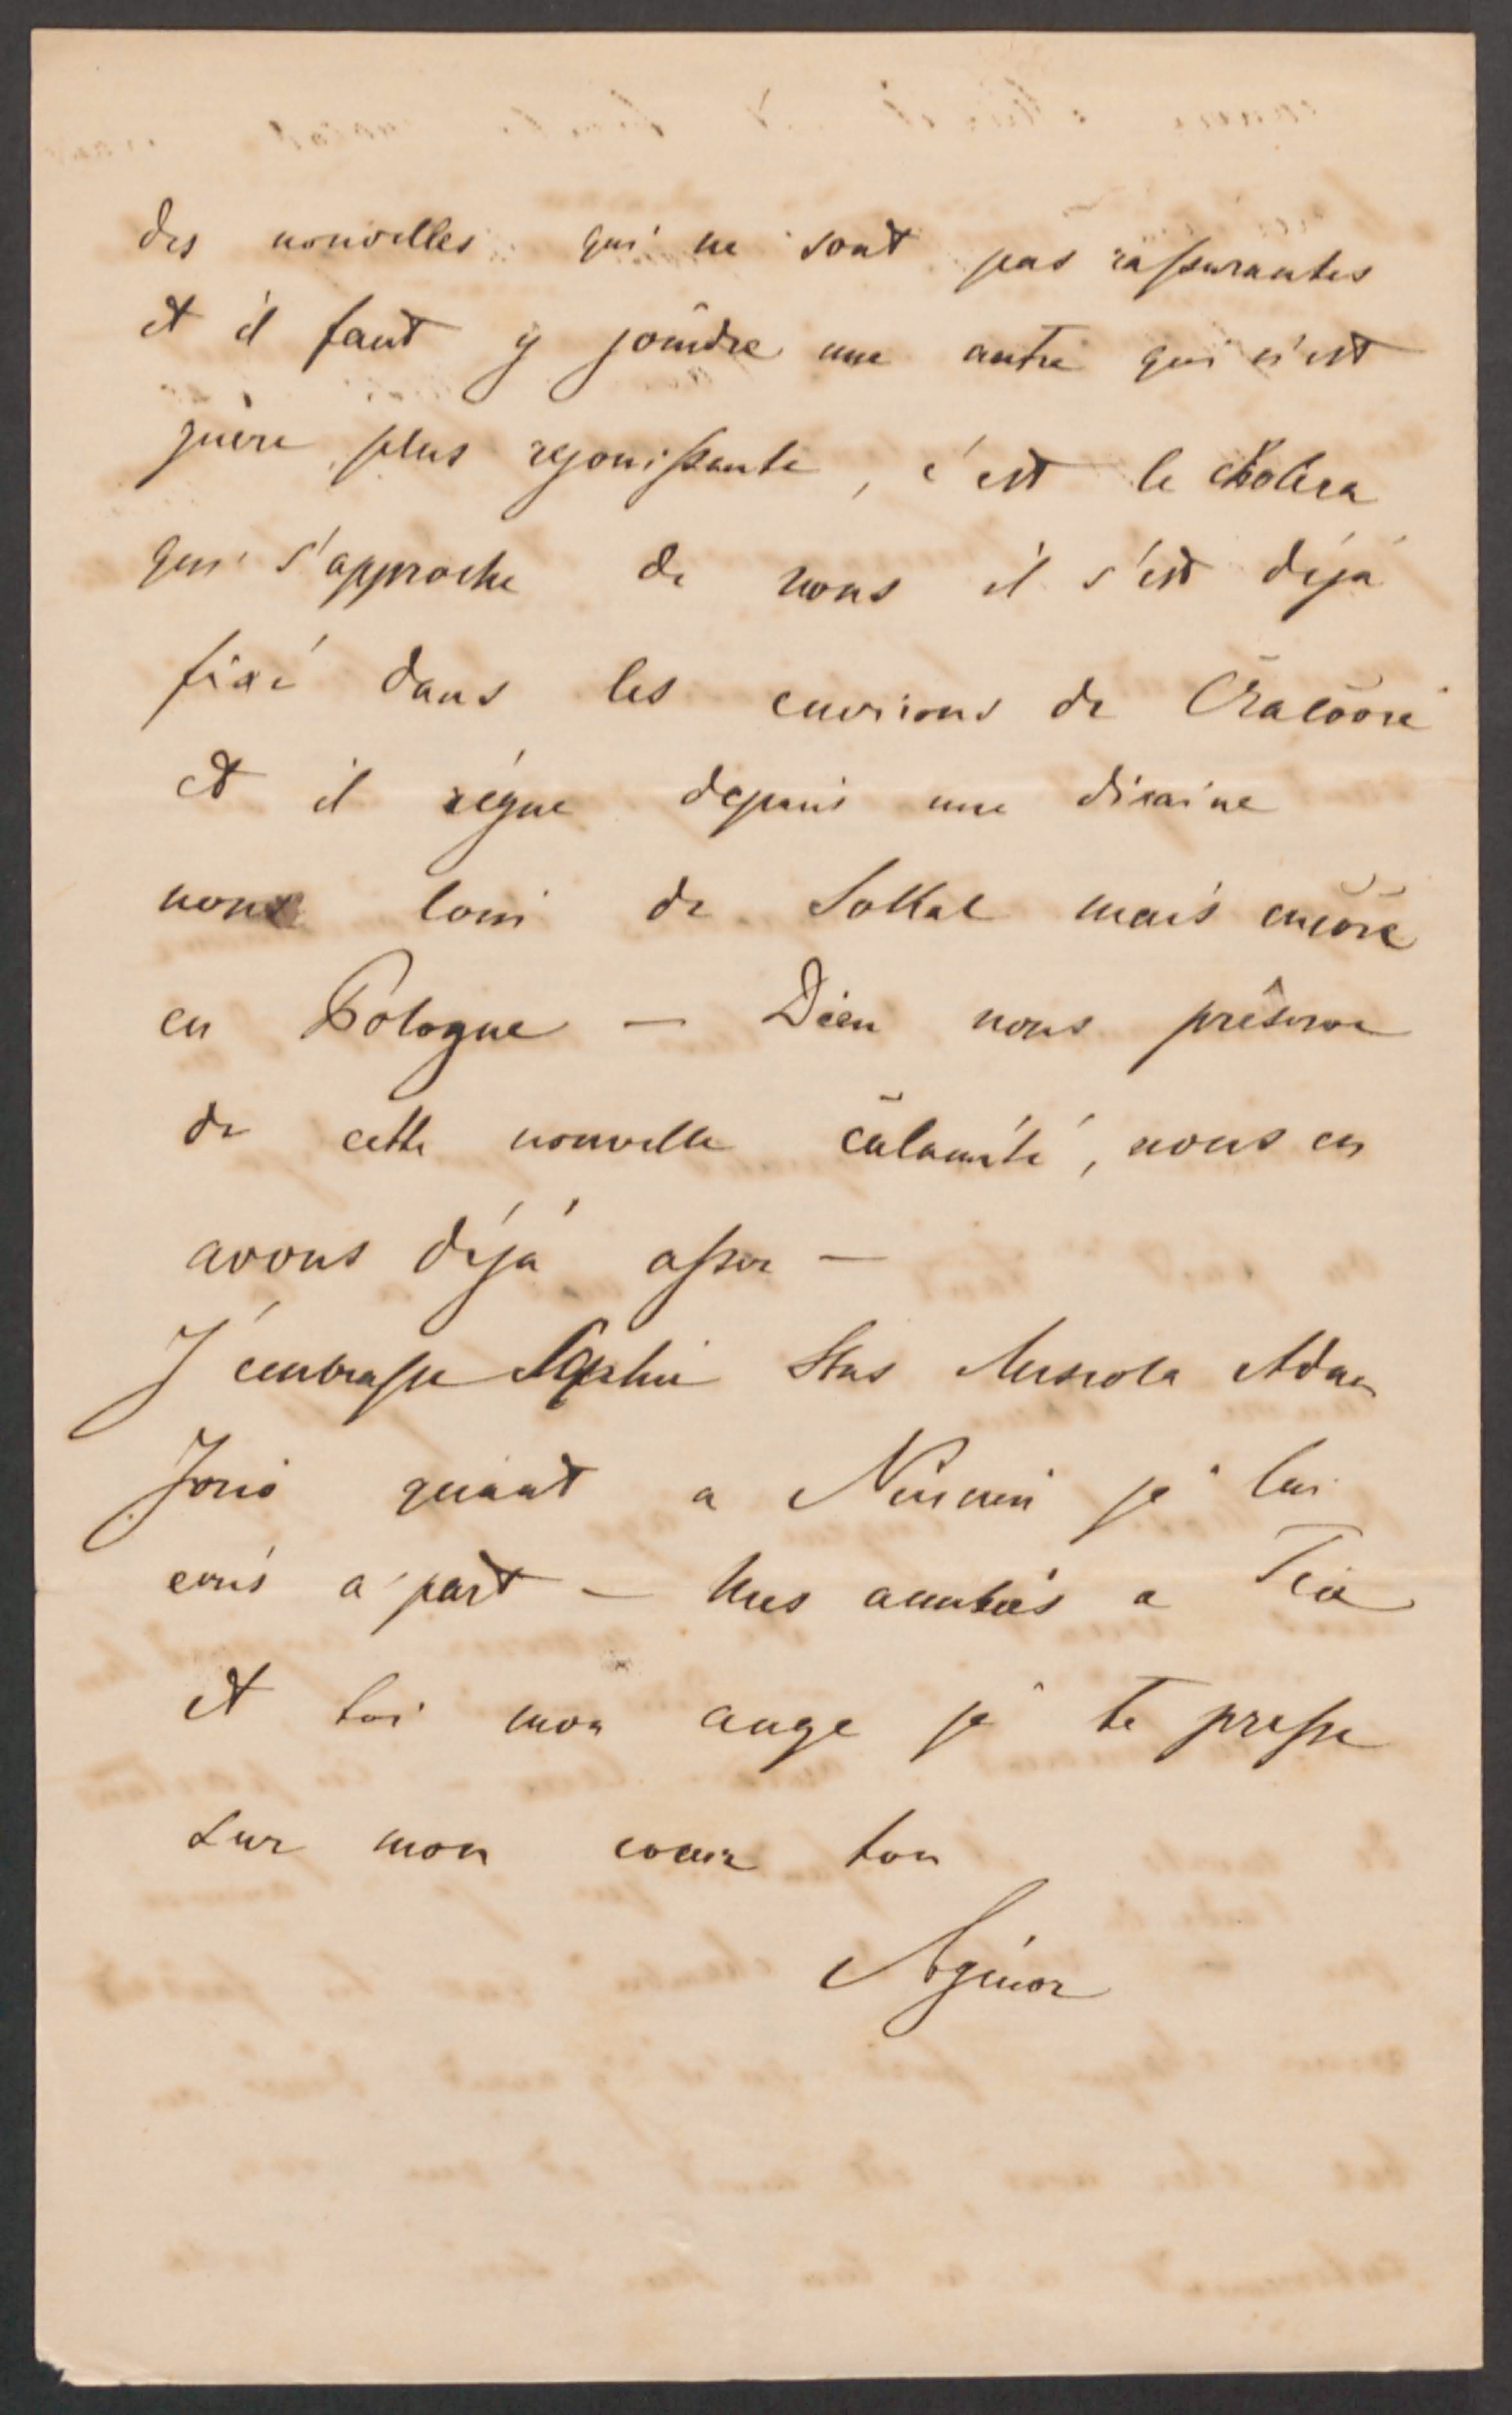 des nouvelles qui ne sont pas rassurantes
et il faut y joindre une autre qui n'est
guère plus rejouissante, c'est le cholera
qui s'approche de nous il s'est déjá
fixé dans les environs de Cracovie
et il régne depuis une dizaine
non loin de Sokal mais encore
en Pologne — Dieu nous préserve
de cette nouvelle calamité, nous en
avons déjá assez —
J'embrasse Sophie Stas Adam
quant a je lui
ecris a part — Mes amitiés a
et toi mon ange je te presse
sur mon coeur ton
Agénor